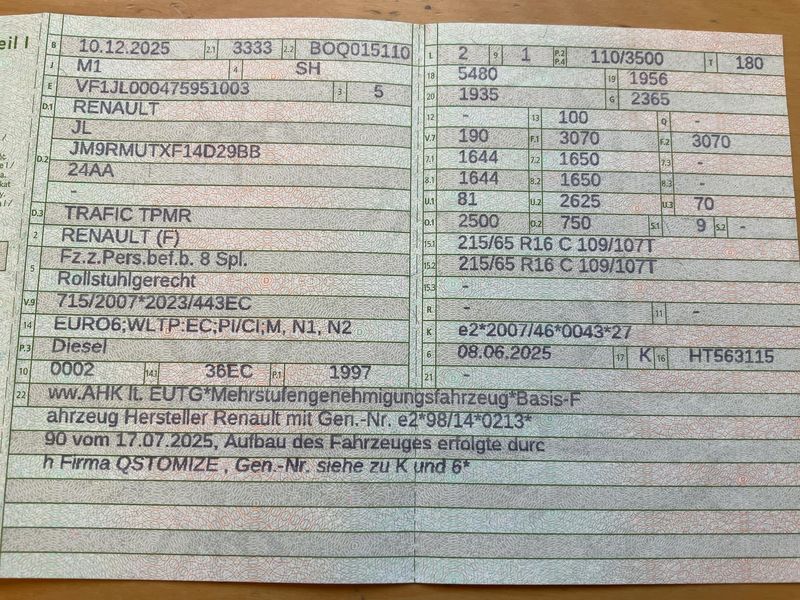 eil I
B 10.12.2025 2.1 3333 2.2 BOQ015110
J M1 4 SH
E VF1JL000475951003 3 5
D.1 RENAULT
JL
D.2 JM9RMUTXF14D29BB
24AA
-
D.3 TRAFIC TPMR
2 RENAULT (F)
5 Fz.z.Pers.bef.b. 8 Spl.
Rollstuhlgerecht
V.9 715/2007*2023/443EC
14 EURO6;WLTP:EC;PI/CI;M, N1, N2
P.3 Diesel
10 0002 14.1 36EC P.1 1997
L 2 9 1 P.2 P.4 110/3500 T 180
18 5480 19 1956
20 1935 G 2365
12 - 13 100 Q -
V.7 190 F.1 3070 F.2 3070
7.1 1644 7.2 1650 7.3 -
8.1 1644 8.2 1650 8.3 -
U.1 81 U.2 2625 U.3 70
O.1 2500 O.2 750 S.1 9 S.2 -
15.1 215/65 R16 C 109/107T
15.2 215/65 R16 C 109/107T
15.3 -
R - 11 -
K e2*2007/46*0043*27
6 08.06.2025 17 K 16 HT563115
21 -
22 ww.AHK lt. EUTG*Mehrstufengenehmigungsfahrzeug*Basis-F
ahrzeug Hersteller Renault mit Gen.-Nr. e2*98/14*0213*
90 vom 17.07.2025, Aufbau des Fahrzeuges erfolgte durc
h Firma QSTOMIZE , Gen.-Nr. siehe zu K und 6*